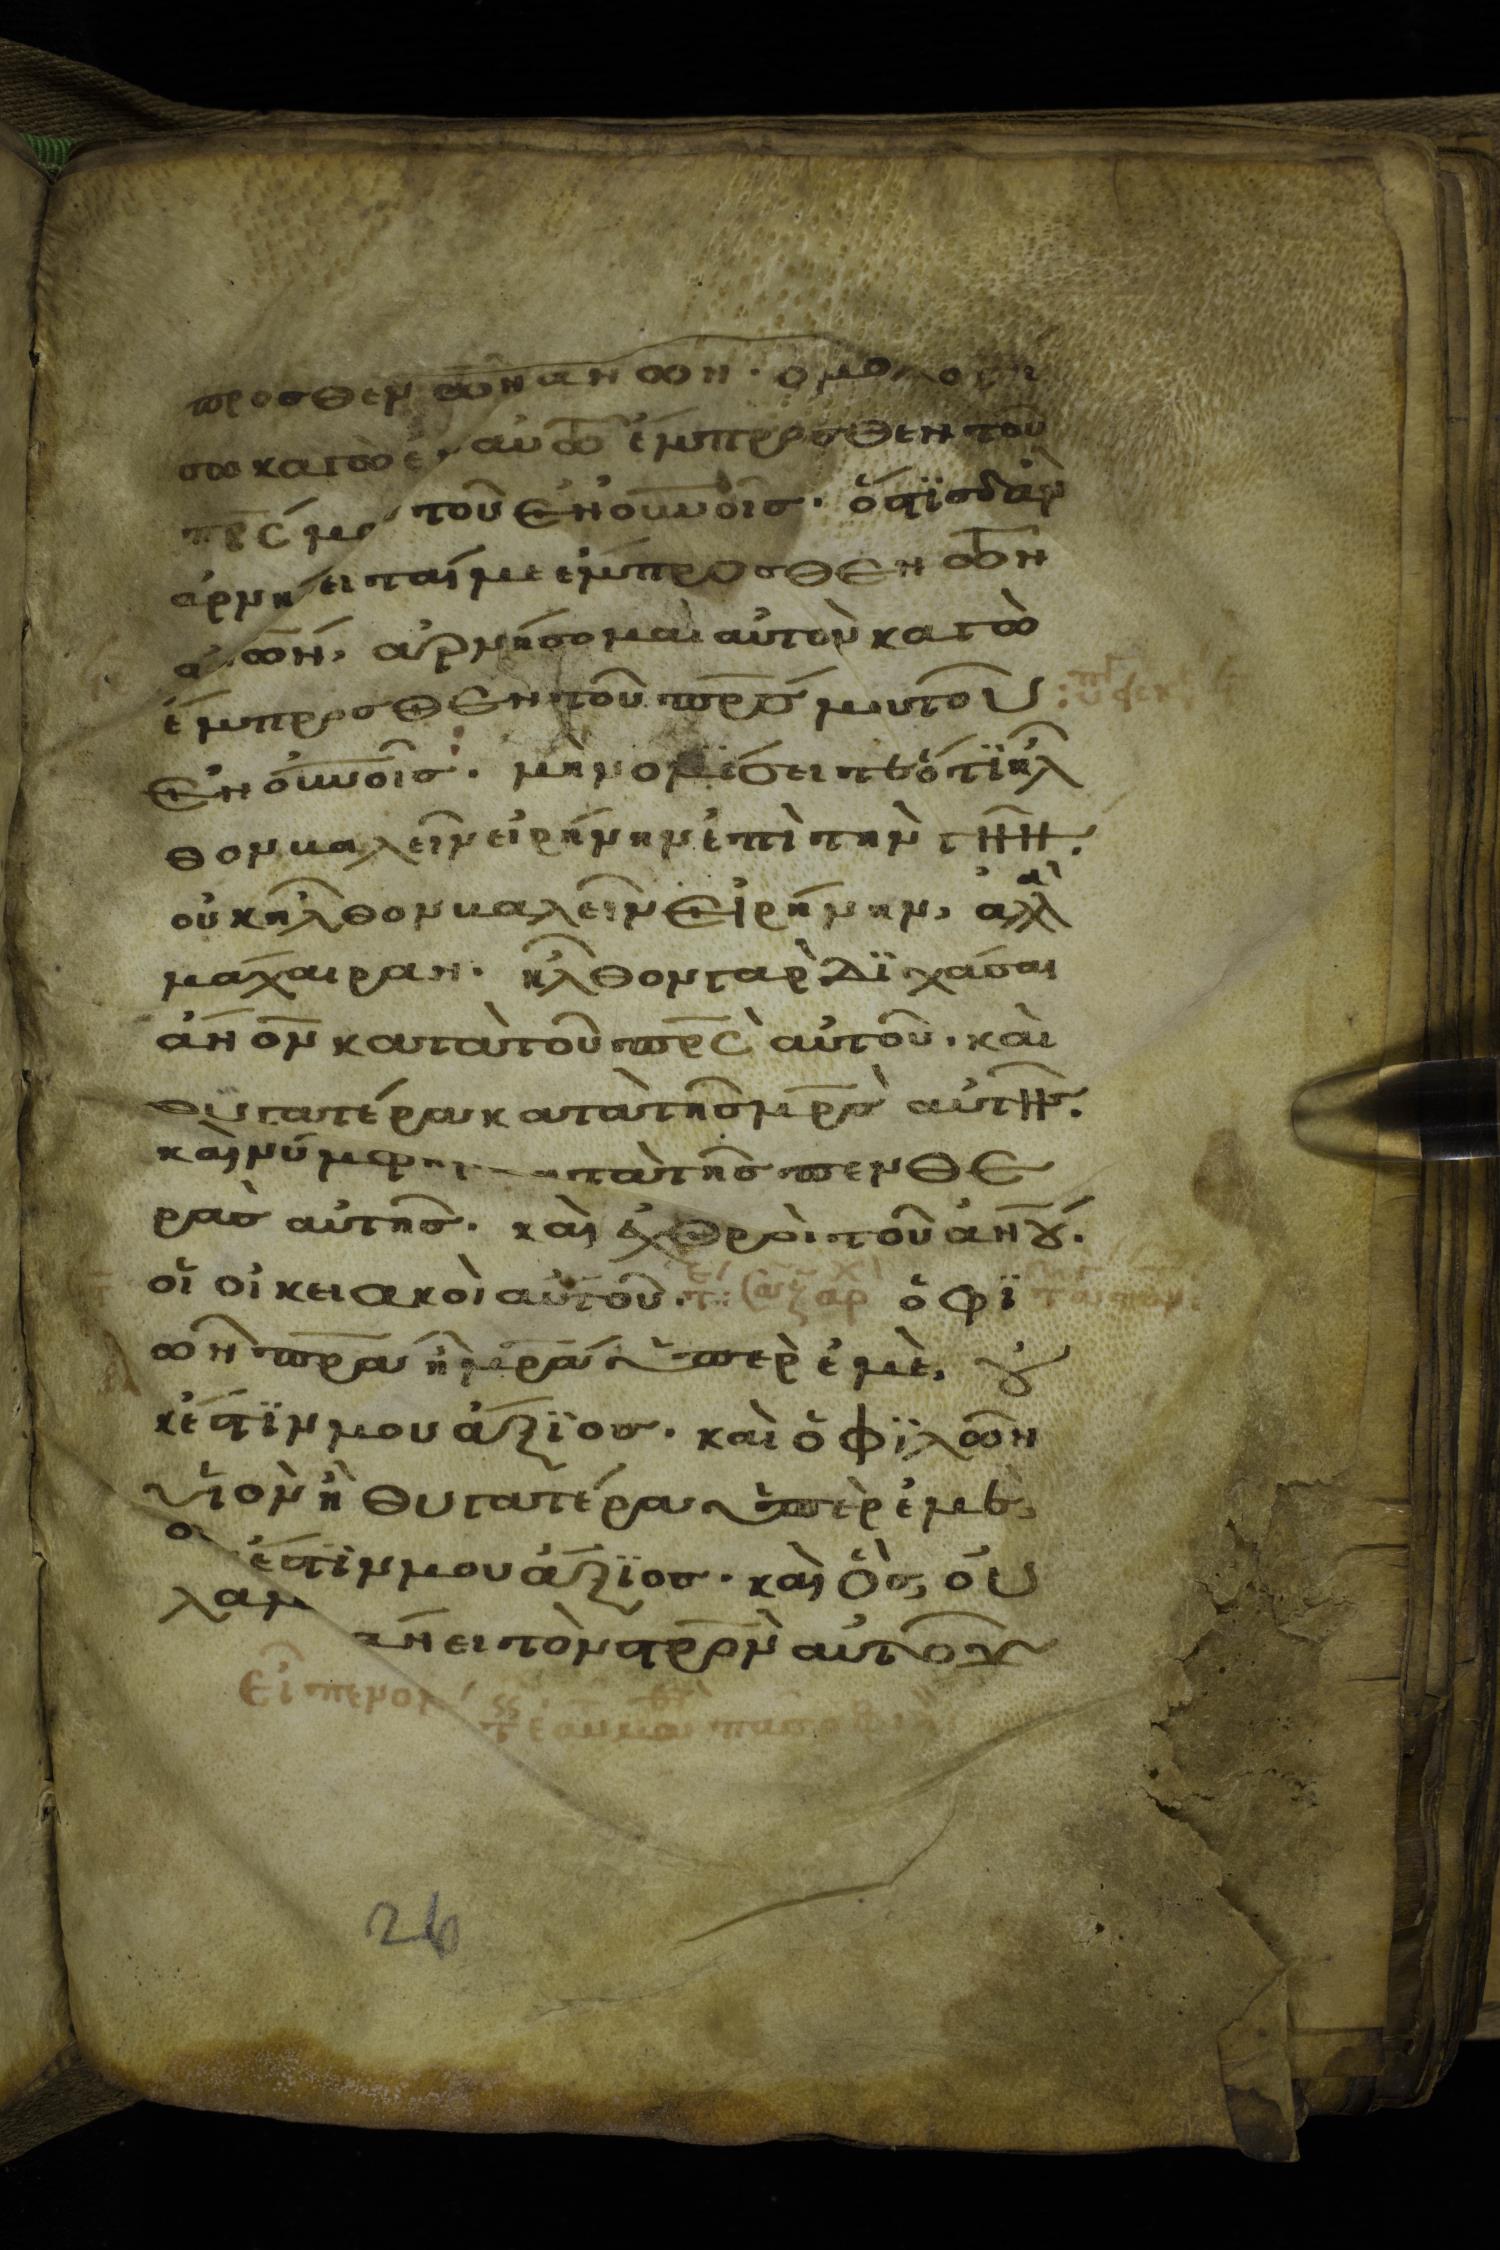 προσθεν τῶν ἀνων· ομολογη
σω καγὼ ἐν αὐτῶ ἔμπροσθεν τοῦ
πρς μου τοῦ ἐν οὐνοῖς· ὅστϊσ δἂν
ἀρνήσηται με ἔμπροσθεν τῶν
ανων, ἀρνήσομαι αὐτὸν καγὼ
ἔμπροσθεν τοῦ πρσ μου τοῦ
ἐν οὐνοῖσ· μὴ νομΐσειτε ὅτϊ ἦλ
θον βαλεῖν εἰρήνην ἐπὶ τὴν γῆν.
οὐκ ἦλθον βαλεῖν εἰρήνην, ἀλλὰ
μάχαιραν· ἦλθον γαρ δϊχάσαι
ἄνον κατὰ τοῦ πρς αὐτοῦ· καὶ
θϋγατέρα κατὰ τῆσ μρσ αὐτῆσ.
καὶ νύμφην κατὰ τῆσ πενθε
ρὰσ αὐτῆσ· καὶ ἐχθροὶ τοῦ ἀνου.
οἵ οἰκειακοὶ αὐτοῦ· ὅ φϊ
λῶν πρα ἢ μρα ὕπὲρ ἐμὲ, οὐ
κέστϊν μου ἄξϊοσ· καὶ ὅ φϊλῶν
ὕϊὸν ἢ θυγατέρα ὕπὲρ ἐμὲ,
οὐκ έστϊν μου ἄξϊοσ· καὶ ὃσ οὐ
λαμβάνει τὸν στρον αὐτοῦ